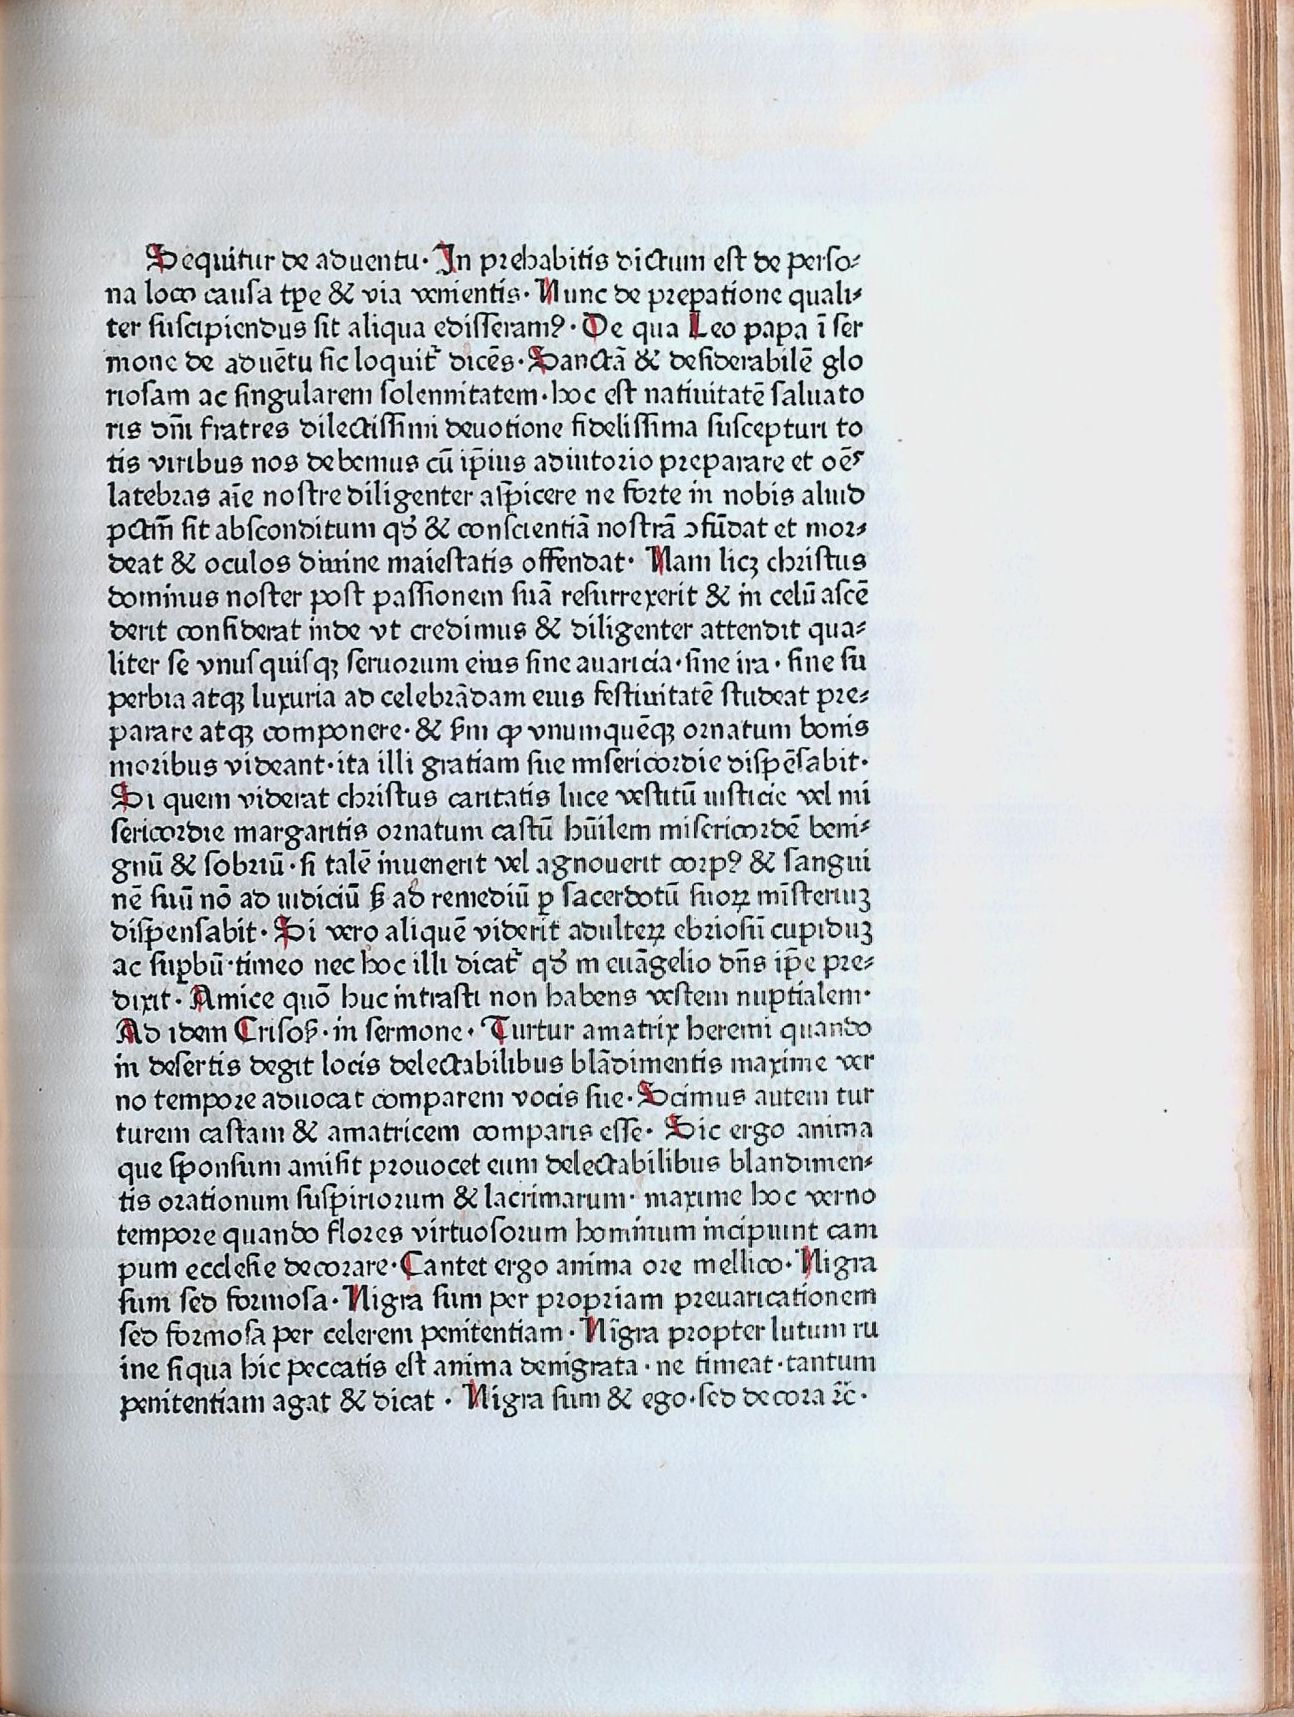 Sequitur de aduentu· In prehabitis dictum est de perso⸗
na loco causa tp̄e & via venientis· Nunc de prep̱atione quali⸗
ter suscipiendus sit aliqua edisseramꝰ· De qua Leo papa ī ser
mone de aduētu sic loquit᷑ dicēs· Sanctā & desiderabilē glo
riosam ac singularem solennitatem· hoc est natiuitatē saluato
ris dn̄i fratres dilectissimi deuotione fidelissima suscepturi to
tis viribus nos debemus cū ip̄ius adiutorio preparare et oēs
latebras aīe nostre diligenter asp̄icere ne forte in nobis aliud
pctm̄ sit absconditum qd̓ & conscientiā nostrā ↄfūdat et mor⸗
deat & oculos diuine maiestatis offendat· Nam licꝫ christus
dominus noster post passionem suā resurrexerit & in celū ascē
derit considerat inde vt credimus & diligenter attendit qua⸗
liter se vnusquisqꝫ seruorum eius sine auaricia· sine ira· sine su
perbia atqꝫ luxuria ad celebrādam eius festiuitatē studeat pre⸗
parare atqꝫ componere· & ẜm ꝙ vnumquēqꝫ ornatum bonis
moribus videant· ita illi gratiam sue misericordie dispēsabit·
Si quem viderat christus caritatis luce vestitū iusticie vel mi
sericordie margaritis ornatum castū hūilem misericordē beni⸗
gnū & sobriū· si talē inuenerit vel agnouerit corpꝰ & sangui
nē suū nō ad iudiciū ẜ ad remediū ꝑ sacerdotū suoꝝ mīsteriuꝫ
dispensabit· Si vero aliquē viderit adulteꝝ ebriosū cupiduꝫ
ac suꝑbū· timeo nec hoc illi dicat᷑ qd̓ in euāgelio dn̄s ip̄e pre⸗
dixit· Amice quō huc intrasti non habens vestem nuptialem·
Ad idem Crisoẜ· in sermone· Turtur amatrix heremi quando
in desertis degit locis delectabilibus blādimentis maxime ver
no tempore aduocat comparem vocis sue· Scimus autem tur
turem castam & amatricem comparis esse· Sic ergo anima
que sponsum amisit prouocet eum delectabilibus blandimen⸗
tis orationum suspiriorum & lacrimarum· maxime hoc verno
tempore quando flores virtuosorum hominum incipiunt cam
pum ecclesie decorare· Cantet ergo anima ore mellico· Nigra
sum sed formosa· Nigra sum per propriam preuaricationem
sed formosa per celerem penitentiam· Nigra propter lutum ru
ine si qua hic peccatis est anima denigrata· ne timeat· tantum
penitentiam agat & dicat· Nigra sum & ego· sed decora ⁊c̄·